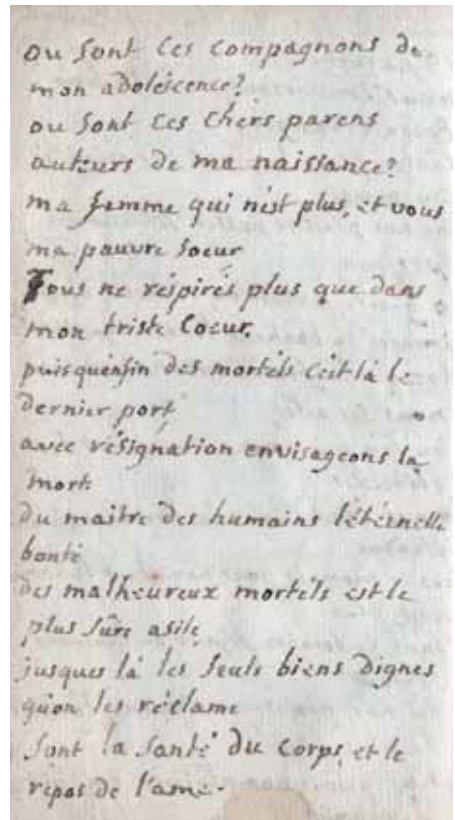 ou sont ces compagnons de
mon adoléscence?
ou sont ces chers parens
auteurs de ma naissance?
ma femme qui n'est plus, et vous
ma pauvre soeur
Tous ne réspirés plus que dans
mon triste Coeur.
puis quenfin des mortels c'est là le
dernier port
avec résignation envisageons la
mort.
du maitre des humains l'éternelle
bonté
des malheureux mortels est le
plus sûre asile
jusques là les seuls biens dignes
qu'on les réclame
sont la santé du corps, et le
repos de l'ame.